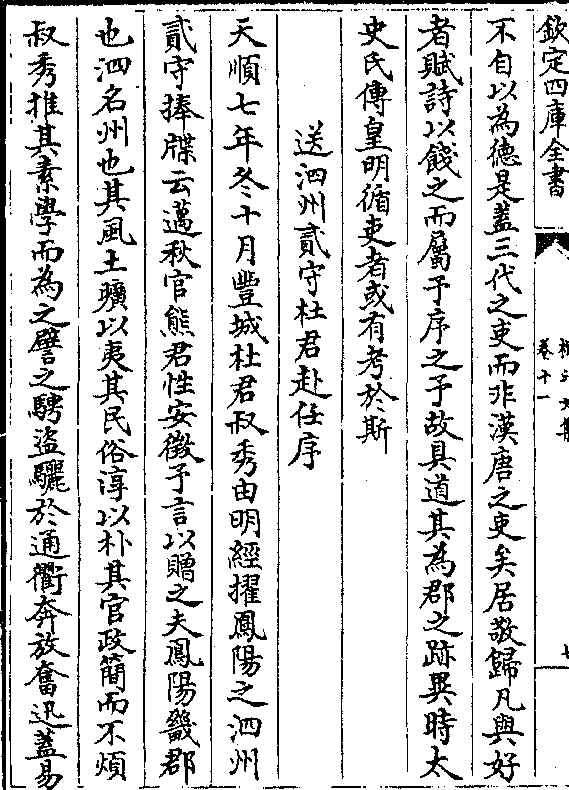 欽定四庫全書
卷十一
不自以為德是蓋三代之吏而非漢唐之吏矣居敬歸凡與好
者賦詩以餞之而屬予序之予故具道其為郡之跡異時太
史氏傳皇明循吏者或有考於斯
送泗州貳守杜君赴任序
天順七年冬十月豐城杜君叔秀由明經擢鳳陽之泗州
貳守捧牒云邁秋官熊君性安徵予言以贈之夫鳳陽畿郡
也泗名州也其風土曠以夷其民俗淳以朴其官政簡而不煩
叔秀推其素學而為之譬之騁盜驪於通衢奔放奮迅蓋易